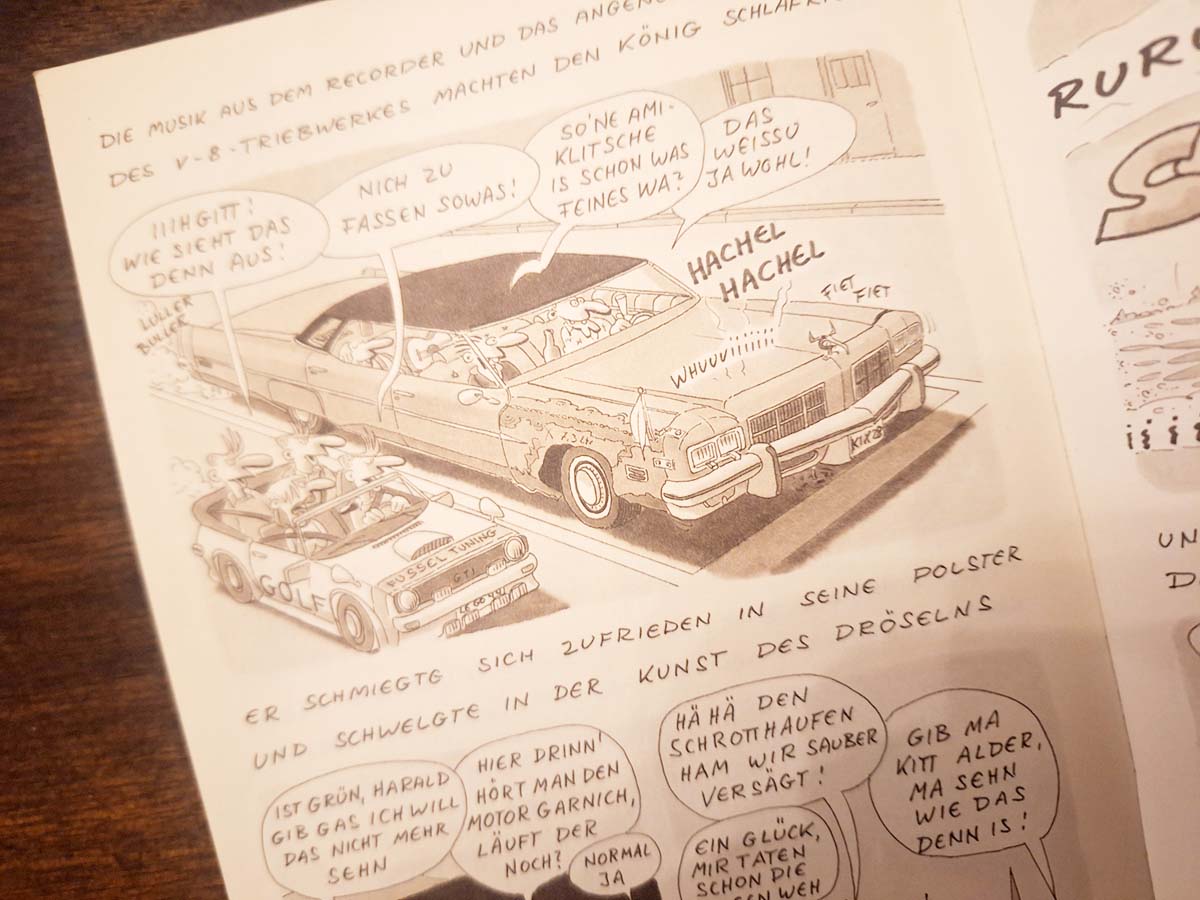 DIE MUSIK AUS DEM RECORDER UND DAS
DES V-8-TRIEBWERKES MACHTEN DEN KÖNIG
IIIHGITT!
WIE SIEHT DAS
DENN AUS!
NICH ZU
FASSEN SOWAS!
SO'NE AMI-
KLITSCHE
IS SCHON WAS
FEINES WA?
DAS
WEISSU
JAWOHL!
HACHEL
HACHEL
FIET
FIET
LULLER
BULLER
WHUUVIIIIIII
GOLF
FUSSEL TUNING
GTI
ER SCHMIEGTE SICH ZUFRIEDEN IN SEINE POLSTER
UND SCHWELGTE IN DER KUNST DES DRÖSELNS
IST GRÜN, HARALD
GIB GAS ICH WILL
DAS NICHT MEHR
SEHN
HIER DRINN'
HÖRT MAN DEN
MOTOR GARNICH,
LÄUFT DER
NOCH?
NORMAL
JA
HÄ HÄ DEN
SCHROTTHAUFEN
HAM WIR SAUBER
VERSÄGT!
EIN GLÜCK,
MIR TATEN
SCHON DIE
WEH
GIB MA
KITT ALDER,
MA SEHN
WIE DAS
DENN IS!